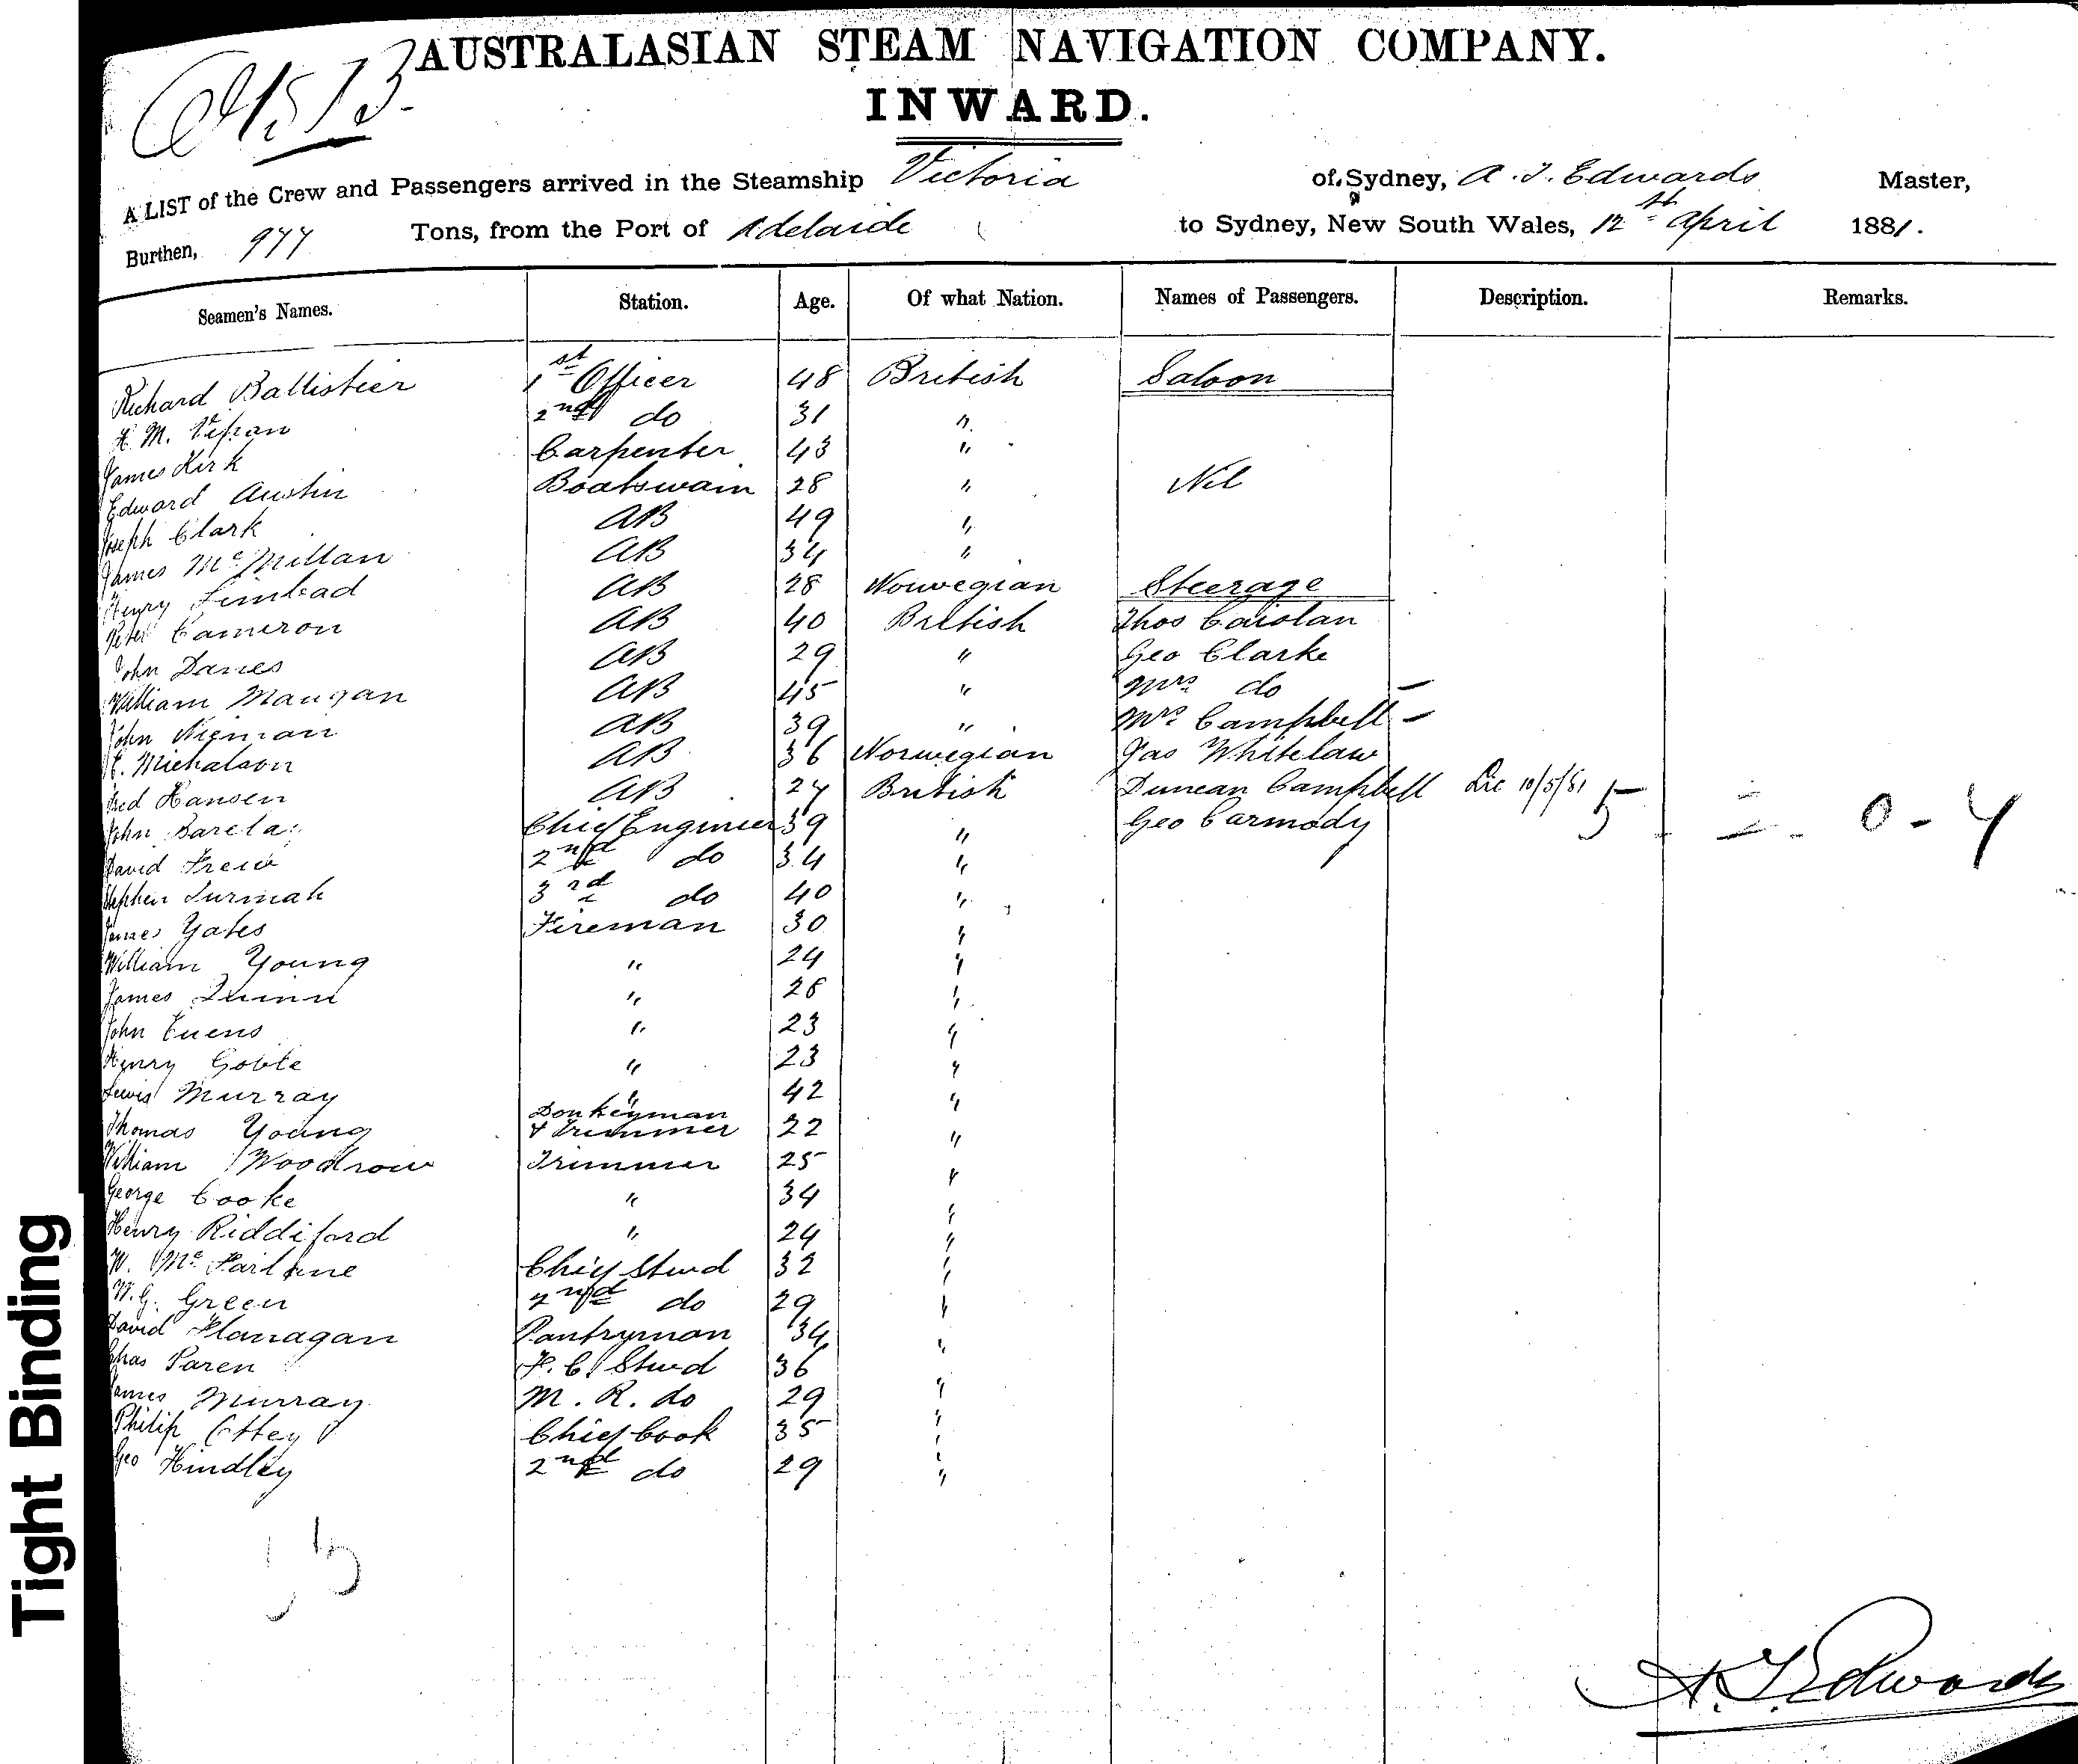 AUSTRALASIAN STEAM NAVIGATION COMPANY.
INWARD.
A LIST of the Crew and Passengers arrived in the Steamship Victoria of Sydney, A. J. Edwards Master,
Burthen, 977 Tons, from the Port of Adelaide to Sydney, New South Wales, 12th April 1881.
Seamen's Names. Station. Age. Of what Nation. Names of Passengers. Description. Remarks.
Richard Ballistier 1st Officer 48 British Saloon
M. 2nd do 31 "
James Kirk Carpenter 43 "
Edward Austin Boatswain 28 " Nil
Joseph Clark AB 49 "
James McMillan AB 34 "
Henry AB 28 Norwegian Steerage
Peter Cameron AB 40 British Thos Carolan
John Davies AB 29 " Geo Clarke
William Maugan AB 45 " Mrs do —
John Nieman AB 39 " Mrs Campbell —
Michalson AB 36 Norwegian Jas Whitelaw
Fred Hansen AB 27 British Duncan Campbell Lic 10/5/81 5 - 2 - 0 - 4
John Barclay Chief Engineer 39 " Geo Carmody
David Frew 2nd do 34 "
Stephen 3rd do 40 "
James Yates Fireman 30 "
William Young " 24 "
James Quinn " 28 "
John Euens " 23 "
Henry Goble " 23 "
Lewis Murray " 42 "
Thomas Young Donkeyman & Trimmer 22 "
William Woodrow Trimmer 25 "
George Cooke " 34 "
Henry Riddiford " 24 "
W. McFarlane Chief Stwd 32 "
W. G. Green 2nd do 29 "
David Flanagan Pantryman 34 "
Chas Paren F. C. Stwd 36 "
James Murray M. R. do 29 "
Philip Ottey Chief Cook 35 "
Geo Hindley 2nd do 29 "
A. J. Edwards
Tight Binding